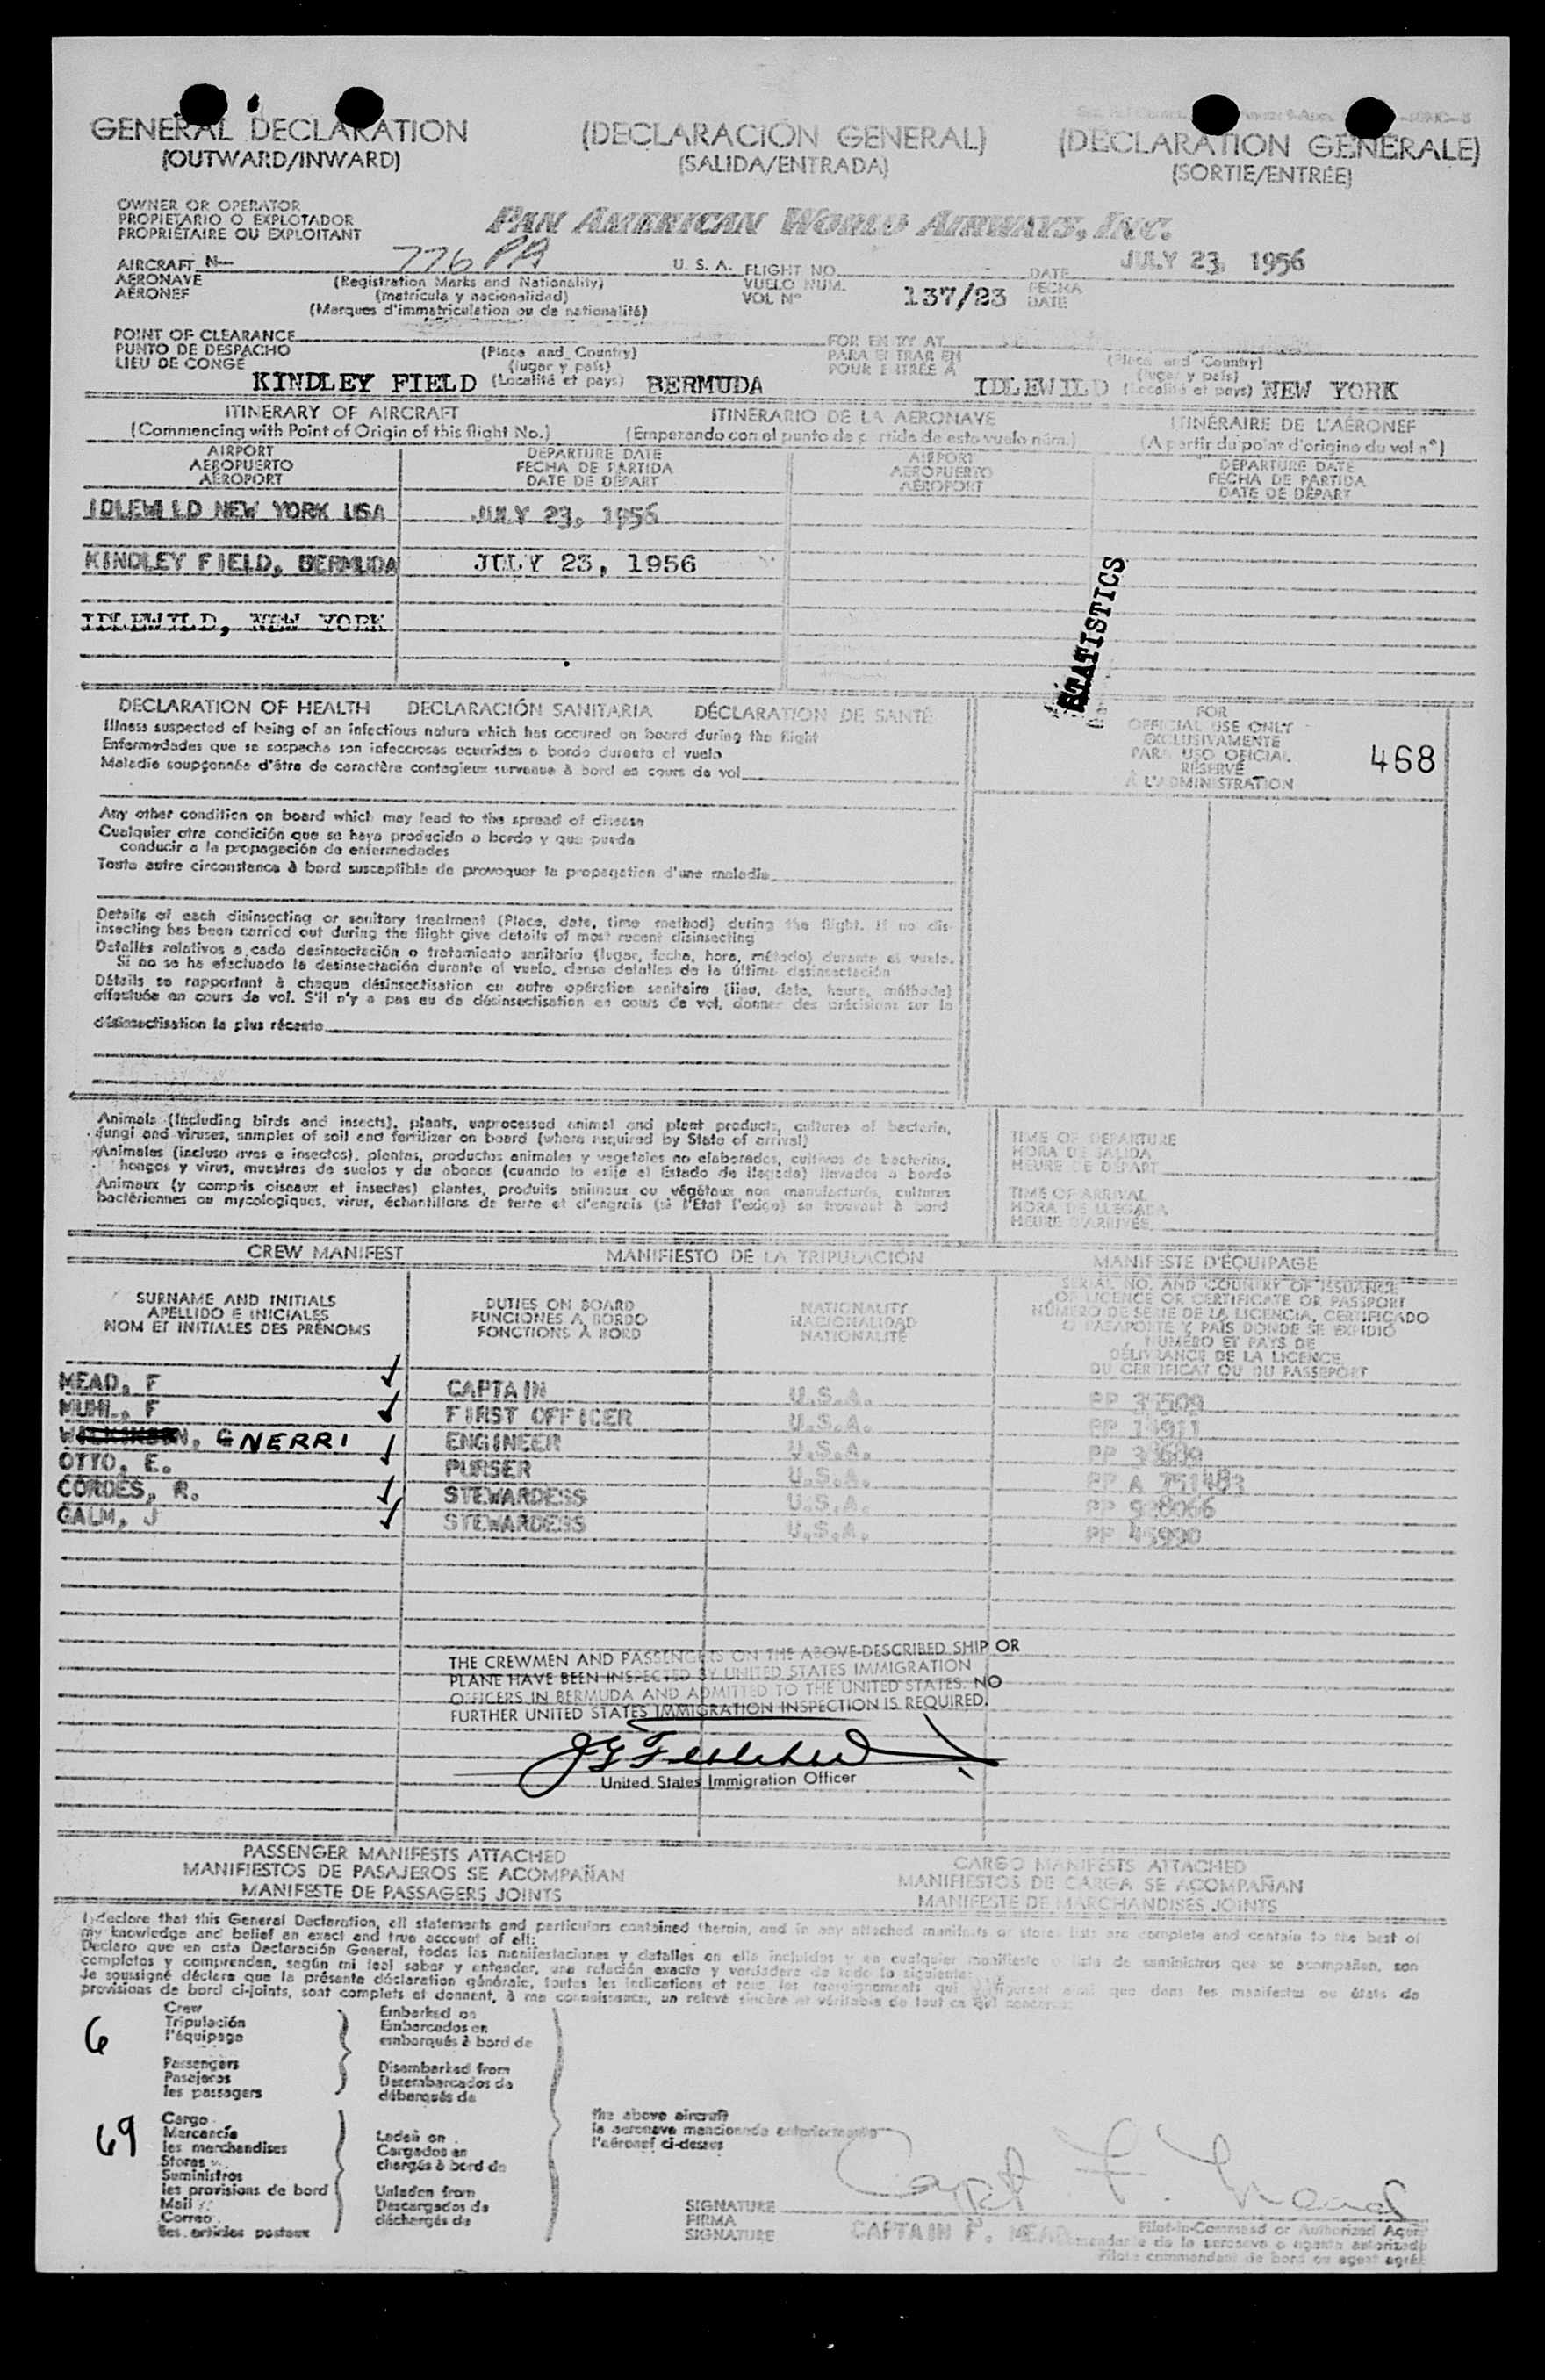 GENERAL DECLARATION (DECLARACIÓN GENERAL) (DÉCLARATION GÉNÉRALE)
(OUTWARD/INWARD) (SALIDA/ENTRADA) (SORTIE/ENTRÉE)
OWNER OR OPERATOR
PROPIETARIO O EXPLOTADOR
PROPRIÉTAIRE OU EXPLOITANT
PAN AMERICAN WORLD AIRWAYS, INC.
AIRCRAFT N- 776 PA U. S. A. FLIGHT NO. DATE JULY 23, 1956
AERONAVE (Registration Marks and Nationality) VUELO NUM. 137/23 FECHA
AÉRONEF (matrícula y nacionalidad) VOL Nº DATE
(Marques d'immatriculation ou de nationalité)
POINT OF CLEARANCE FOR ENTRY AT
PUNTO DE DESPACHO (Place and Country) PARA ENTRAR EN (Place and Country)
LIEU DE CONGÉ (lugar y país) POUR ENTRÉE À (lugar y país)
KINDLEY FIELD (Localité et pays) BERMUDA IDLEWILD (Localité et pays) NEW YORK
ITINERARY OF AIRCRAFT ITINERARIO DE LA AERONAVE ITINÉRAIRE DE L'AÉRONEF
(Commencing with Point of Origin of this flight No.) (Empezando con el punto de partida de este vuelo núm.) (A partir du point d'origine du vol nº)
AIRPORT DEPARTURE DATE AIRPORT DEPARTURE DATE
AEROPUERTO FECHA DE PARTIDA AEROPUERTO FECHA DE PARTIDA
AÉROPORT DATE DE DÉPART AÉROPORT DATE DE DÉPART
IDLEWILD NEW YORK USA JULY 23, 1956
KINDLEY FIELD, BERMUDA JULY 23, 1956
IDLEWILD, NEW YORK
STATISTICS
DECLARATION OF HEALTH DECLARACIÓN SANITARIA DÉCLARATION DE SANTÉ
Illness suspected of being of an infectious nature which has occured on board during the flight
Enfermedades que se sospecha son infecciosas ocurridas a bordo durante el vuelo
Maladie soupçonnée d'être de caractère contagieux survenue à bord en cours de vol
FOR
OFFICIAL USE ONLY
EXCLUSIVAMENTE
PARA USO OFICIAL
RÉSERVÉ
À L'ADMINISTRATION
468
Any other condition on board which may lead to the spread of disease
Cualquier otra condición que se haya producido a bordo y que pueda
conducir a la propagación de enfermedades
Toute autre circonstance à bord susceptible de provoquer la propagation d'une maladie
Details of each disinsecting or sanitary treatment (Place, date, time method) during the flight. If no dis-
insecting has been carried out during the flight give details of most recent disinsecting
Detalles relativos a cada desinsectación o tratamiento sanitario (lugar, fecha, hora, método) durante el vuelo.
Si no se ha efectuado la desinsectación durante el vuelo, dense detalles de la última desinsectación
Détails se rapportant à chaque désinsectisation ou autre opération sanitaire (lieu, date, heure, méthode)
effectuée en cours de vol. S'il n'y a pas eu de désinsectisation en cours de vol, donner des précisions sur la
désinsectisation la plus récente
Animals (Including birds and insects), plants, unprocessed animal and plant products, cultures of bacteria,
fungi and viruses, samples of soil and fertilizer on board (where required by State of arrival)
Animales (incluso aves e insectos), plantas, productos animales y vegetales no elaborados, cultivos de bacterias,
hongos y virus, muestras de suelos y de abonos (cuando lo exija el Estado de llegada) llevados a bordo
Animaux (y compris oiseaux et insectes) plantes, produits animaux ou végétaux non manufacturés, cultures
bactériennes ou mycologiques, virus, échantillons de terre et d'engrais (si l'Etat l'exige) se trouvant à bord
TIME OF DEPARTURE
HORA DE SALIDA
HEURE DE DÉPART
TIME OF ARRIVAL
HORA DE LLEGADA
HEURE D'ARRIVÉE
CREW MANIFEST MANIFIESTO DE LA TRIPULACIÓN MANIFESTE D'ÉQUIPAGE
SURNAME AND INITIALS
APELLIDO E INICIALES
NOM ET INITIALES DES PRÉNOMS
DUTIES ON BOARD
FUNCIONES A BORDO
FONCTIONS À BORD
NATIONALITY
NACIONALIDAD
NATIONALITÉ
SERIAL NO. AND COUNTRY OF ISSUANCE
OF LICENCE OR CERTIFICATE OR PASSPORT
NÚMERO DE SERIE DE LA LICENCIA, CERTIFICADO
O PASAPORTE Y PAÍS DONDE SE EXPIDIÓ
NUMÉRO ET PAYS DE
DÉLIVRANCE DE LA LICENCE,
DU CERTIFICAT OU DU PASSEPORT
MEAD, F CAPTAIN U.S.A. PP
MUHL, F FIRST OFFICER U.S.A. PP
WILKINSON, G NERRI ENGINEER U.S.A. PP
OTTO, E. PURSER U.S.A. PP A
CORDES, R. STEWARDESS U.S.A. PP
GALM, J STEWARDESS U.S.A. PP
THE CREWMEN AND PASSENGERS ON THE ABOVE-DESCRIBED SHIP OR
PLANE HAVE BEEN INSPECTED BY UNITED STATES IMMIGRATION
OFFICERS IN BERMUDA AND ADMITTED TO THE UNITED STATES. NO
FURTHER UNITED STATES IMMIGRATION INSPECTION IS REQUIRED.
United States Immigration Officer
PASSENGER MANIFESTS ATTACHED CARGO MANIFESTS ATTACHED
MANIFIESTOS DE PASAJEROS SE ACOMPAÑAN MANIFIESTOS DE CARGA SE ACOMPAÑAN
MANIFESTE DE PASSAGERS JOINTS MANIFESTE DE MARCHANDISES JOINTS
I declare that this General Declaration, all statements and particulars contained therein, and in any attached manifests or stores lists are complete and contain to the best of
my knowledge and belief an exact and true account of all:
Declaro que en esta Declaración General, todas las manifestaciones y detalles en ella incluídos y en cualquier manifiesto o lista de suministros que se acompañen, son
completos y comprenden, según mi leal saber y entender, una relación exacta y verdadera de todo lo siguiente:
Je soussigné déclare que la présente déclaration générale, toutes les indications et tous les renseignements qui y figurent ainsi que dans les manifestes ou états de
provisions de bord ci-joints, sont complets et donnent, à ma connaissance, un relevé sincère et véritable de tout ce qui concerne:
6
Crew
Tripulación
l'équipage
Passengers
Pasajeros
les passagers
Embarked on
Embarcados en
embarqués à bord de
Disembarked from
Desembarcados de
débarqués de
69
Cargo
Mercancía
les marchandises
Stores
Suministros
les provisions de bord
Mail
Correo
les articles postaux
Laden on
Cargados en
chargés à bord de
Unladen from
Descargados de
déchargés de
the above aircraft
la aeronave mencionada anteriormente
l'aéronef ci-dessus
SIGNATURE Capt F. Mead
FIRMA
SIGNATURE CAPTAIN F. MEAD
Pilot-in-Command or Authorized Agent
comandante de la aeronave o agente autorizado
Pilote commandant de bord ou agent agréé